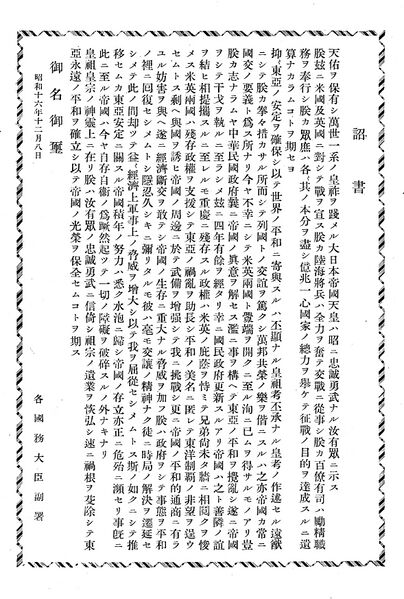 詔書
天佑ヲ保有シ萬世一系ノ皇祚ヲ踐メル大日本帝國天皇ハ昭ニ忠誠勇武ナル汝有眾ニ示ス
朕玆ニ米國及英國ニ對シテ戰ヲ宣ス朕カ陸海將兵ハ全力ヲ奮テ交戰ニ從事シ朕カ百僚有司ハ勵精職
務ヲ奉行シ朕カ眾庶ハ各〻其ノ本分ヲ盡シ億兆一心國家ノ總力ヲ擧ケテ征戰ノ目的ヲ達成スルニ遺
算ナカラムコトヲ期セヨ
抑〻東亞ノ安定ヲ確保シ以テ世界ノ平和ニ寄與スルハ丕顯ナル皇祖考丕承ナル皇考ノ作述セル遠猷
ニシテ朕カ拳〻措カサル所而シテ列國トノ交誼ヲ篤クシ萬邦共榮ノ樂ヲ偕ニスルハ之亦帝國カ常ニ
國交ノ要義ト爲ス所ナリ今ヤ不幸ニシテ米英兩國ト釁端ヲ開クニ至ル洵ニ已ムヲ得サルモノアリ豈
朕カ志ナラムヤ中華民國政府曩ニ帝國ノ眞意ヲ解セス濫ニ事ヲ構ヘテ東亞ノ平和ヲ攪亂シ遂ニ帝國
ヲシテ干戈ヲ執ルニ至ラシメ玆ニ四年有餘ヲ經タリ幸ニ國民政府更新スルアリ帝國ハ之ト善隣ノ誼
ヲ結ヒ相提携スルニ至レルモ重慶ニ殘存スル政權ハ米英ノ庇蔭ヲ恃ミテ兄弟尚未タ牆ニ相鬩クヲ悛
メス米英兩國ハ殘存政權ヲ支援シテ東亞ノ禍亂ヲ助長シ平和ノ美名ニ匿レテ東洋制覇ノ非望ヲ逞ウ
セムトス剩ヘ與國ヲ誘ヒ帝國ノ周邊ニ於テ武備ヲ增強シテ我ニ挑戰シ更ニ帝國ノ平和的通商ニ有ラ
ユル妨害ヲ與ヘ遂ニ經濟斷交ヲ敢テシ帝國ノ生存ニ重大ナル脅威ヲ加フ朕ハ政府ヲシテ事態ヲ平和
ノ裡ニ回復セシメムトシ隱忍久シキニ彌リタルモ彼ハ毫モ交讓ノ精神ナク徒ニ時局ノ解決ヲ遷延セ
シメテ此ノ間却ツテ益〻經濟上軍事上ノ脅威ヲ增大シ以テ我ヲ屈從セシメムトス斯ノ如クニシテ推
移セムカ東亞安定ニ關スル帝國積年ノ努力ハ悉ク水泡ニ歸シ帝國ノ存立亦正ニ危殆ニ瀕セリ事既ニ
此ニ至ル帝國ハ今ヤ自存自衞ノ爲蹶然起ツテ一切ノ障礙ヲ破碎スルノ外ナキナリ
皇祖皇宗ノ神靈上ニ在リ朕ハ汝有眾ノ忠誠勇武ニ信倚シ祖宗ノ遺業ヲ恢弘シ速ニ禍根ヲ芟除シテ東
亞永遠ノ平和ヲ確立シ以テ帝國ノ光榮ヲ保全セムコトヲ期ス
御名御璽
昭和十六年十二月八日
各國務大臣副署